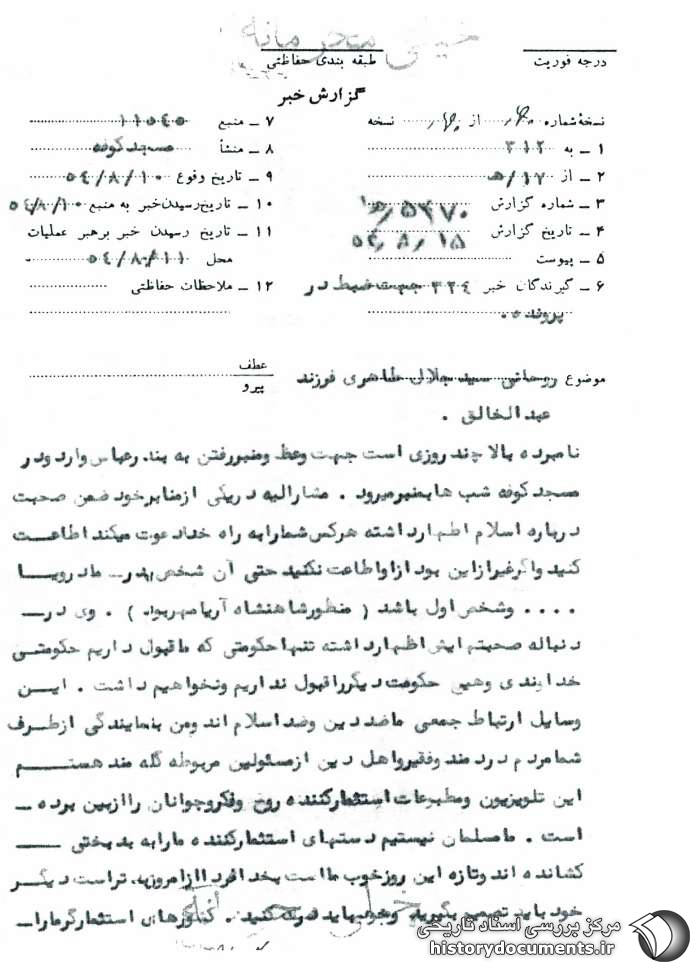 خیلی محرمانه
درجه فوریت
طبقه بندی حفاظتی
گزارش خبر
نسخهٔ شماره از نسخه
۱ ـ به ۳۱۲
۲ ـ از ۱۷/ه
۳ ـ شماره گزارش
۴ ـ تاریخ گزارش ۵۴/۸/۱۵
۵ ـ پیوست
۶ ـ گیرندگان خبر ۳۲۴ جهت ضبط در
پرونده .
۷ ـ منبع ۱۱۵۴۵
۸ ـ منشأ مسجد کوفه
۹ ـ تاریخ وقوع ۵۴/۸/۱۰
۱۰ ـ تاریخ رسیدن خبر به منبع ۵۴/۸/۱۰
۱۱ ـ تاریخ رسیدن خبر برهبر عملیات
محل ۵۴/۸/۱۱
۱۲ ـ ملاحظات حفاظتی
موضوع روحانی سید جلال طاهری فرزند
عبدالخالق .
عطف
پیرو
نامبرده بالا چند روزی است جهت وعظ ومنبررفتن به بندرعباس وارد ودر
مسجد کوفه شب ها بمنبر میرود . مشارالیه در یکی ازمنابر خود ضمن صحبت
درباره اسلام اظهارداشته هرکس شمارابه راه خدادعوت میکند اطاعت
کنید واگر غیرازاین بود ازاواطاعت نکنید حتی آن شخص پدر ـ مادر ویا
.... وشخص اول باشد ( منظور شاهنشاه آریامهر بود ) . وی در ـ
دنباله صحبتهایش اظهارداشته تنها حکومتی که ماقبول داریم حکومتـی
خداوندی وهیچ حکومت دیگر راقبول نداریم ونخواهیم داشت . ایـن
وسایل ارتباط جمعی ماضد دین وضد اسلام اند ومن بنمایندگی ازطرف
شما مردم دردمند وفقیر واهل دین ازمسئولین مربوطه گله مند هستـم
این تلویزیون ومطبوعات استثمارکننده روح وفکر جوانان را ازبین برده ـ
است . مامسلمان نیستیم دستهای استثمارکننده مارابه بدبختی ـــ
کشانده اند وتازه این روز خوب مااست بخدا فردا ازامروز بدتراست دیگـر
خود باید تصمیم بگیرید وخود باید فکر کنید . کشورهای استثمارگر مارا ـ
خیلی محرمانه
مرکز بررسی اسناد تاریخی
historydocuments.ir